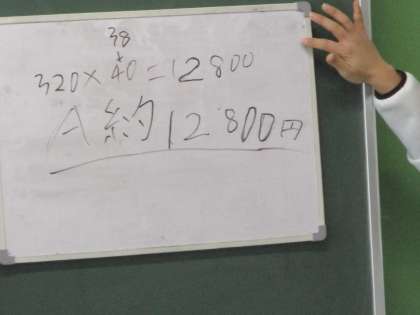 38
320×40=12800
A 約12800円